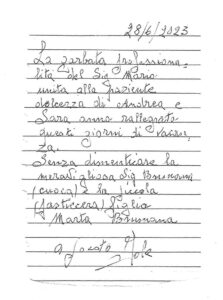 28/6/2023
La garbata professiona-
lità del Sig. Mario
unita alla paziente
dolcezza di Andrea e
Sara anno rallegrato
questi giorni di vacan-
za.
Senza dimenticare la
meravigliosa Sig.
(cuoca) e la piccola
(pasticcera) figlia
Marta